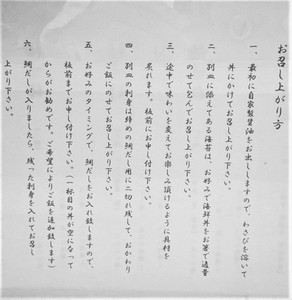 お召し上がり方
一、最初に自家製醤油をお出ししますので、わさびを溶いて
丼にかけてお召し上がり下さい。
二、別皿に添えてある海苔は、お好みで海鮮丼をお箸で適量
のせて包んでお召し上がり下さい。
三、途中で味わいを変えてお楽しみ頂けるように具材を
炙れます。板前にお申し付け下さい。
四、別皿の刺身は締めの鯛だし用に二切れ残して、おかわり
ご飯にのせてお召し上がり下さい。
五、お好みのタイミングで、鯛だしをお入れ致しますので、
板前までお申し付け下さい。(一杯目の丼が空になって
からがお勧めです。ご希望によりご飯を追加致します)
六、鯛だしが入りましたら、残った刺身を入れてお召し
上がり下さい。